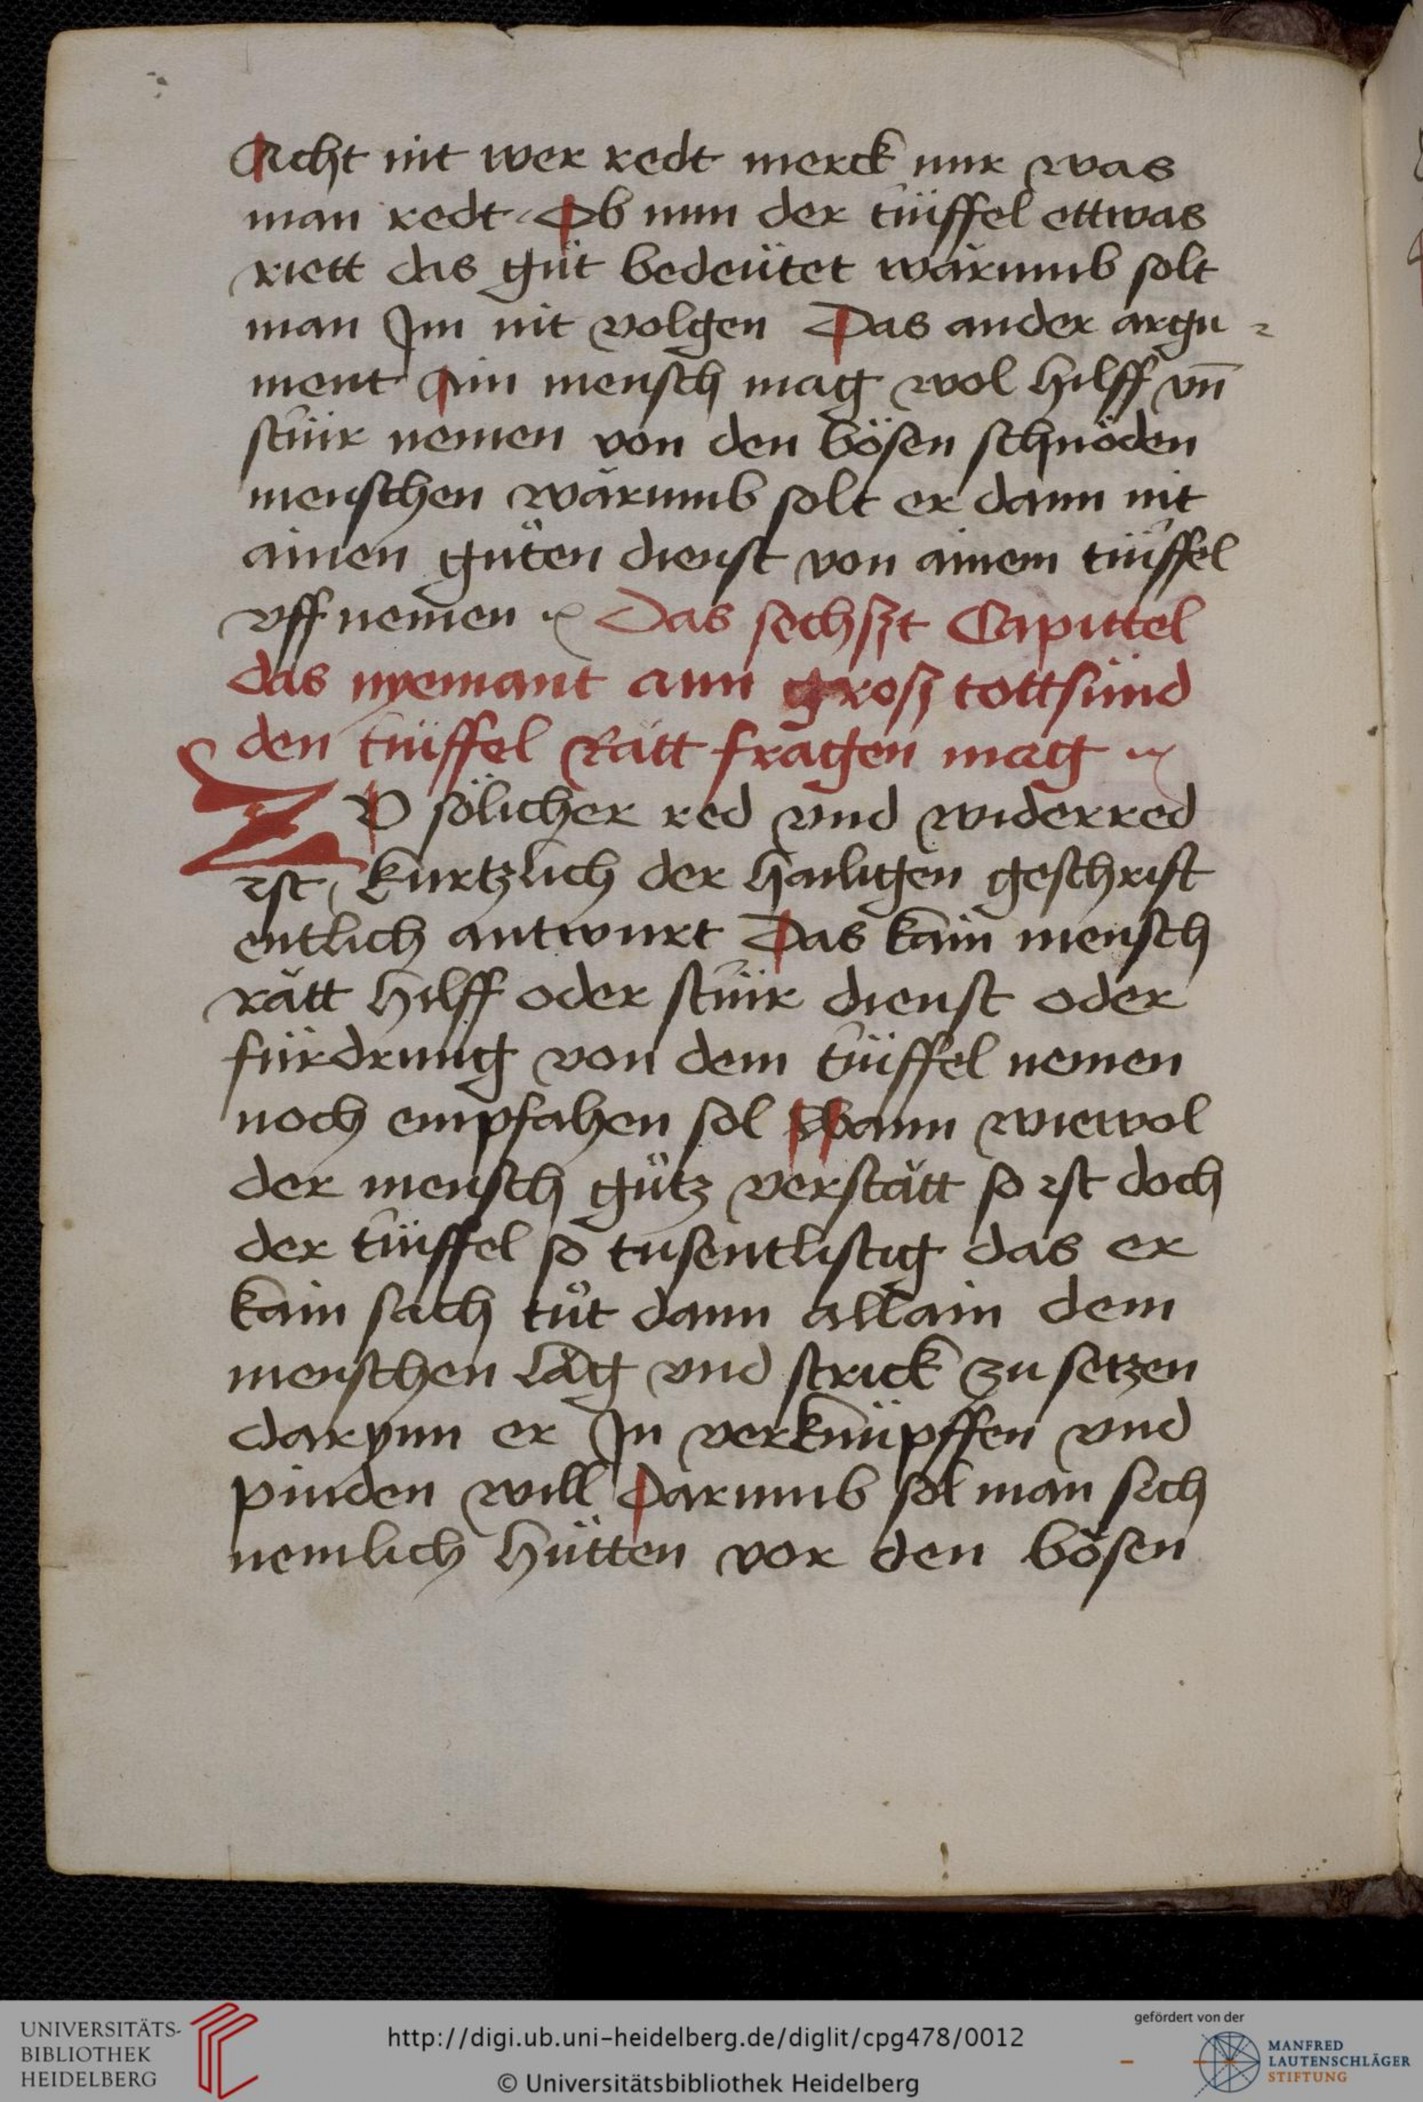 Acht nit wer redt merck nur was
man redt Ob nun der tüffel ettwas
riett das gůt bedeütet wärumb solt
man Jm nit volgen Das ander argu-
ment Ain mensch mag wol hilff vn̄
stüir nemen von den bösen schnöden
menschen wärumb solt er dann nit
ainen gůten dienst von ainem tüffel
vff nemen Das sechszt Capittel
das nyemant ann grosz tottsünd
den tüffel Rätt fragen mag
ZV sölicher red vnd widerred
ist kurtzlich der hailigen geschrift
entlich antwurt Das kain mensch
rătt hilff oder stüir dienst oder
fürdrung von dem tüffel nemen
noch empfahen sol Wann wiewol
der mensch gůtz verstätt so ist doch
der tüffel so tusentlistig das er
kain sach tůt dann allain dem
menschen lăg vnd strick zu setzen
darynn er Jn verknüpffen vnd
pinden will Darumb sol man sich
nemlich hütten vor den bösen
UNIVERSITÄTS-
BIBLIOTHEK
HEIDELBERG
http://digi.ub.uni-heidelberg.de/diglit/cpg478/0012
© Universitätsbibliothek Heidelberg
gefördert von der
MANFRED
LAUTENSCHLÄGER
STIFTUNG